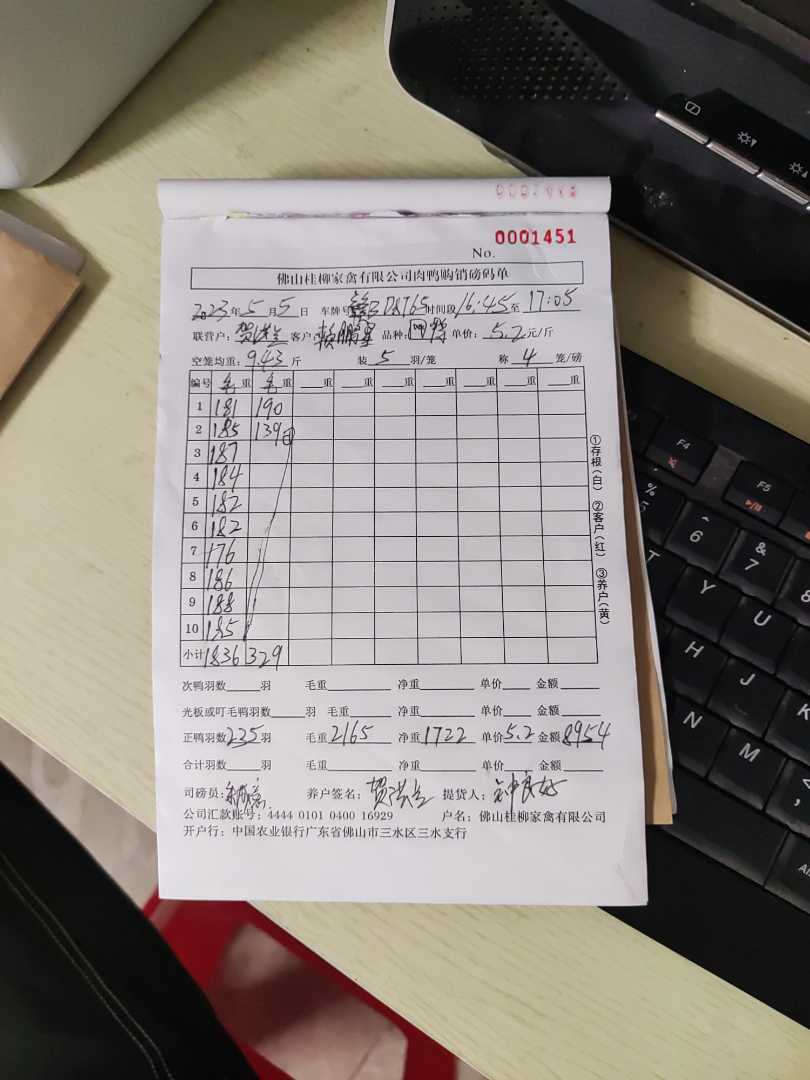 No. 0001451
佛山桂柳家禽有限公司肉鸭购销磅码单
2023年5月5日 车牌号 D8765 时间段16:45至17:05
联营户: 贺洪兰 客户: 赖 品种: 单价: 5.2元/斤
空笼均重: 9.43斤 装5羽/笼 称4笼/磅
编号 毛重 毛重 重 重 重 重 重 重 重
1 181 190
2 185 139
3 187
4 184
5 182
6 182
7 176
8 186
9 188
10 185
小计 1836 329
①存根(白) ②客户(红) ③养户(黄)
次鸭羽数 羽 毛重 净重 单价 金额
光板或叮毛鸭羽数 羽 毛重 净重 单价 金额
正鸭羽数235羽 毛重2165 净重1722 单价5.2 金额8954
合计羽数 羽 毛重 净重 单价 金额
司磅员: 养户签名: 提货人:
公司汇款账号: 4444 0101 0400 16929 户名: 佛山桂柳家禽有限公司
开户行: 中国农业银行广东省佛山市三水区三水支行
F4
F5
%
5
^
6
&
7
8
T
Y
U
H
J
N
M